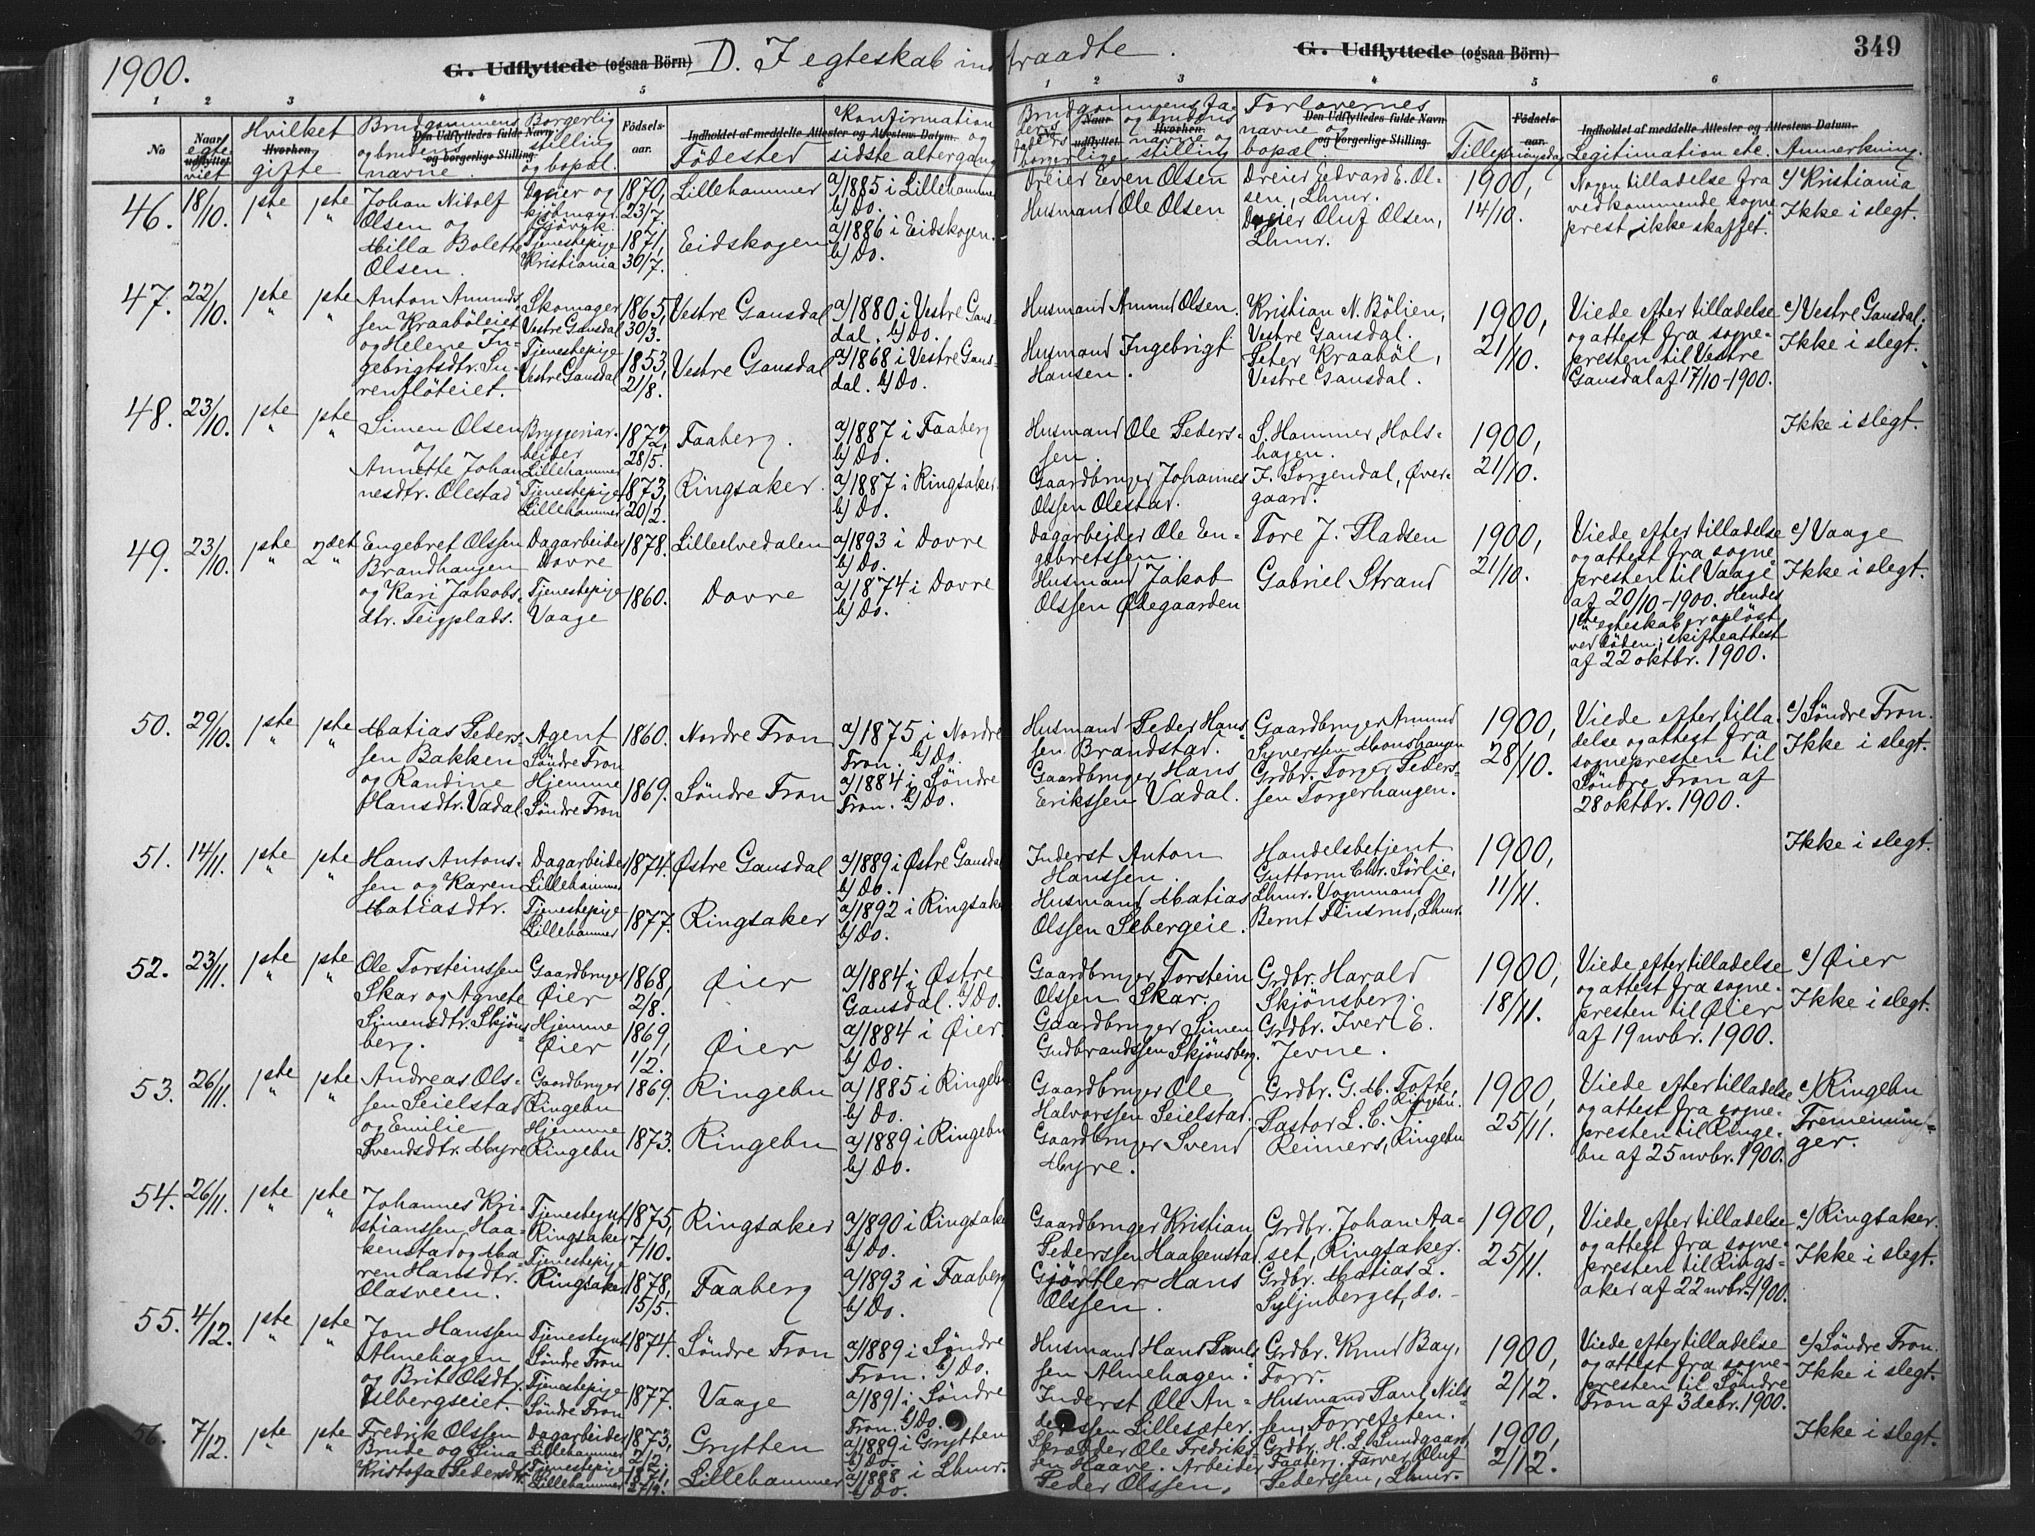 1900.
G. Udflyttede (ogsaa Börn) D. I egteskab indtraadte.
G. Udflyttede (ogsaa Börn)
349
1 2 3 4 5 6
1 2 3 4 5 6
No
Naar udflyttet.
egteviet
Hvilket
Hvorhen.
gifte
Brudgommens
Den Udflyttedes fulde Navn og borgerlige Stilling.
og brudens navne.
Borgerlig stilling og bopæl.
Fødsels-aar.
Indholdet af meddelte Attester og Attestens Datum.
Födested
Konfirmation og sidste altergang
Naar udflyttet.
Hvorhen.
Brudgommens fa-
og brudens
stilling
Forlovernes navne og bopæl
Den Udflyttedes fulde Navn og borgerlige Stilling.
Tillysningsdag
Födsels-aar.
Indholdet af meddelte Attester og Attestens Datum.
Legitimation etc.
Anmerkning.
46. 18/10. 1ste 1ste
Johan Nitolf
Olsen og
Milla Bolette
Olsen.
Dreier og
kjöbmand
Gjövik.
Tjenestepige
Kristiania
1870,
23/7.
1871,
30/7.
Lillehammer
Eidskogen
a/1885 i Lillehammer
b/ Do.
a/1886 i Eidskogen.
b/ Do.
Dreier Even Olsen
Husmand Ole Olsen
Dreier Edvard E. Ol-
sen, Lhmr.
Dreier Oluf Olsen,
Lhmr.
1900,
14/10.
Nogen tilladelse fra
vedkommende sogne-
prest ikke skaffet.
c/ Kristiania
Ikke i slegt.
47. 22/10. 1ste 1ste
Anton Amunds-
sen Kraaböleiet
og Helene In-
gebrigtsdtr. Su-
renflöteiet.
Skomager
Vestre Gausdal
Tjenestepige
Vestre Gausdal
1865,
30/3.
1853,
21/8.
Vestre Gausdal
Vestre Gausdal
a/1880 i Vestre Gaus-
dal. b/ Do.
a/1868 i Vestre Gaus-
dal. b/ Do.
Husmand Amund Olsen.
Husmand Ingebrigt
Hansen.
Kristian N. Bölien,
Vestre Gausdal.
Peter Kraaböl,
Vestre Gausdal.
1900,
21/10.
Viede efter tilladelse
og attest fra sogne-
presten til Vestre
Gausdal af 17/10-1900.
c/ Vestre Gausdal.
Ikke i slegt.
48. 23/10. 1ste 1ste
Simen Olsen
og
Annette Johan-
nesdtr. Olestad
Bryggeriar-
beider
Lillehammer
Tjenestepige
Lillehammer
1872,
28/5.
1873,
20/2.
Faaberg.
Ringsaker.
a/1887 i Faaberg
b/ Do.
a/1887 i Ringsaker.
b/ Do.
Husmand Ole Peders-
sen.
Gaardbruger Johannes
Olssen Olestad.
S. Hammer, Hols-
hagen.
F. Sorgendal, Øver-
gaard.
1900,
21/10.
Ikke i slegt.
49. 23/10. 1ste 2det
Engebret Olssen
Brandhaugen
og Kari Jakobs-
dtr. Teigplads.
Dagarbeider
Dovre
Tjenestepige
Vaage
1878.
1860.
Lilleelvedalen
Dovre
a/1893 i Dovre
b/ Do.
a/1874 i Dovre
b/ Do.
Dagarbejder Ole En-
gebretssen.
Husmand Jakob
Olssen Ødegaarden
Tore J. Pladsen
Gabriel Strand
1900,
21/10.
Viede efter tilladelse
og attest fra sogne-
presten til Vaage
af 20/10-1900. Hendes
1ste egteskab er oplöst
ved döden; skifteattest
af 22 oktbr. 1900.
c/ Vaage
Ikke i slegt.
50. 29/10. 1ste 1ste
Matias Peders-
sen Bakken
og Randine
Hansdtr. Vadal.
Agent
Söndre Fron
Hjemme
Söndre Fron
1860.
1869.
Nordre Fron
Söndre Fron
a/1875 i Nordre
Fron. b/ Do.
a/1884 i Söndre
Fron. b/ Do.
Husmand Peder Hans-
sen Brandstad.
Gaardbruger Hans
Erikssen Vadal.
Gaardbruger Amund
Syverssen Monshaugen
Grdbr. Torger Peders-
sen Torgerhaugen.
1900,
28/10.
Viede efter tilla-
delse og attest fra
sognepresten til
Söndre Fron af
28 oktbr. 1900.
c/ Söndre Fron.
Ikke i slegt.
51. 14/11. 1ste 1ste
Hans Antons-
sen og Karen
Matiasdtr.
Dagarbeider
Lillehammer
Tjenestepige
Lillehammer
1874.
1877.
Østre Gausdal
Ringsaker
a/1889 i Østre Gausdal
b/ Do.
a/1892 i Ringsaker
b/ Do.
Inderst Anton
Hanssen.
Husmand Matias
Olssen Sebergeie.
Handelsbetjent
Guttorm Chr. Sörlie,
Lhmr. Vognmand
Bernt Flinsrud, Lhmr.
1900,
11/11.
Ikke i slegt.
52. 23/11. 1ste 1ste
Ole Torsteinssen
Skar og Agnete
Simensdtr. Skjöns-
berg.
Gaardbruger
Øier
Hjemme
Øier
1868,
2/8.
1869,
1/2.
Øier
Øier
a/1884 i Østre
Gausdal. b/ Do.
a/1884 i Øier.
b/ Do.
Gaardbruger Torstein
Olssen Skar.
Gaardbruger Simen
Gudbrandssen Skjönsberg.
Grdbr. Harald
Skjönsberg.
Grdbr. Ivert E.
Jevne.
1900,
18/11.
Viede efter tilladelse
og attest fra sogne-
presten til Øier
af 19 novbr. 1900.
c/ Øier
Ikke i slegt.
53. 26/11. 1ste 1ste
Andreas Ols-
sen Seielstad
og Emilie
Svendsdtr. Myre
Gaardbruger
Ringebu
Hjemme
Ringebu
1869.
1873.
Ringebu
Ringebu
a/1885 i Ringebu
b/ Do.
a/1889 i Ringebu
b/ Do.
Gaardbruger Ole
Halvorssen Seielstad.
Gaardbruger Svend
Myre.
Grdbr. G. M. Tofte,
Ringebu.
Pastor L. C. J.
Reiners, Ringebu
1900,
25/11.
Viede efter tilladelse
og attest fra sogne-
presten til Ringe-
bu af 25 novbr. 1900.
c/ Ringebu
Tremennin-
ger.
54. 26/11. 1ste 1ste
Johannes Kri-
stianssen Haa-
kenstad og Ma-
ren Hansdtr.
Olasveen.
Tjenestegut
Ringsaker
Tjenestepige
Ringsaker
1875,
7/10.
1878,
15/5.
Ringsaker
Faaberg
a/1890 i Ringsaker
b/ Do.
a/1893 i Faaberg
b/ Do.
Gaardbruger Kristian
Pederssen Haakenstad
Gjörtler Hans
Olssen.
Grdbr. Johan Aa-
set, Ringsaker.
Grdbr. Matias L.
Syljuberget, do.
1900,
25/11.
Viede efter tilladelse
og attest fra sogne-
presten til Rings-
aker af 22 novbr. 1900.
c/ Ringsaker.
Ikke i slegt.
55. 4/12. 1ste 1ste
Jon Hanssen
Almehagen
og Brit Olsdtr.
Ulbergseiet.
Tjenestegut
Söndre Fron
Tjenestepige
Söndre Fron
1874.
1877.
Söndre Fron
Vaage
a/1889 i Söndre
Fron. b/ Do.
a/1891 i Söndre
Fron. b/ Do.
Husmand Hans Pauls-
sen Almehagen.
Inderst Ole An-
derssen Lillesæter.
Grdbr. Knud Bay,
Forr.
Husmand Paul Nils-
sen Forrefeten.
1900,
2/12.
Viede efter tilladelse
og attest fra sogne-
presten til Söndre
Fron af 3 debr. 1900.
c/ Söndre Fron.
Ikke i slegt.
56. 7/12. 1ste 1ste
Fredrik Olssen
Brude og Lina
Kristofa Pedersdtr.
Dagarbeider
Lillehammer
Tjenestepige
Lillehammer
1873,
2/2.
1871,
Grytten
Lillehammer
a/1889 i Grytten
b/ Do.
a/1888 i Lhmr.
b/ Do.
Skrædder Ole Fredriks-
sen Haave. Arbeider
Peder Olssen.
Grdbr. H. L. Sundgaard,
Faaberg. Farver Oluf
Pederssen, Lhmr.
1900,
2/12.
Ikke i slegt.